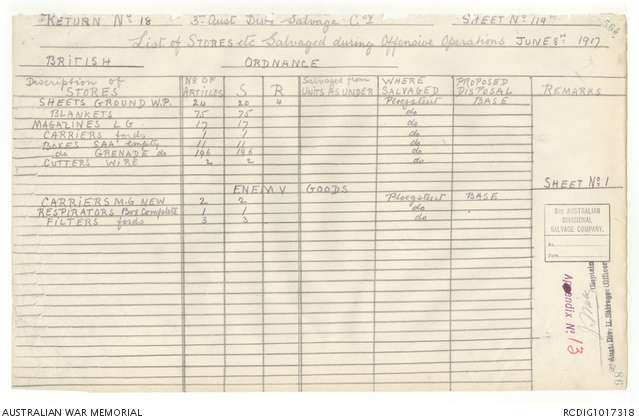 RETURN No 18 3rd Aust Divl Salvage Coy SHEET No 119
List of STORES etc Salvaged during Offensive Operations JUNE 8th 1917
BRITISH ORDNANCE
Discription of STORES No OF ARTICLES S R Salvaged from UNITS AS UNDER WHERE SALVAGED PROPOSED DISPOSAL REMARKS
SHEETS GROUND W.P. 24 20 4 Ploegsteert BASE
BLANKETS 75 75 do
MAGAZINES L G 17 17 do
CARRIERS fords 1 1 do
BOXES SAA empty 11 11 do
do GRENADE do 196 196 do
CUTTERS WIRE 2 2 do
ENEMY GOODS SHEET No 1
CARRIERS M.G NEW 2 2 Ploegsteert BASE
RESPIRATORS Box Complete 1 1 do
FILTERS fords 3 3 do
3RD AUSTRALIAN
DIVISIONAL
SALVAGE COMPANY.
No.
Date
Captain
Aust. Div. Salvage Officer
Appendix No 13
86
AUSTRALIAN WAR MEMORIAL RCDIG1017318